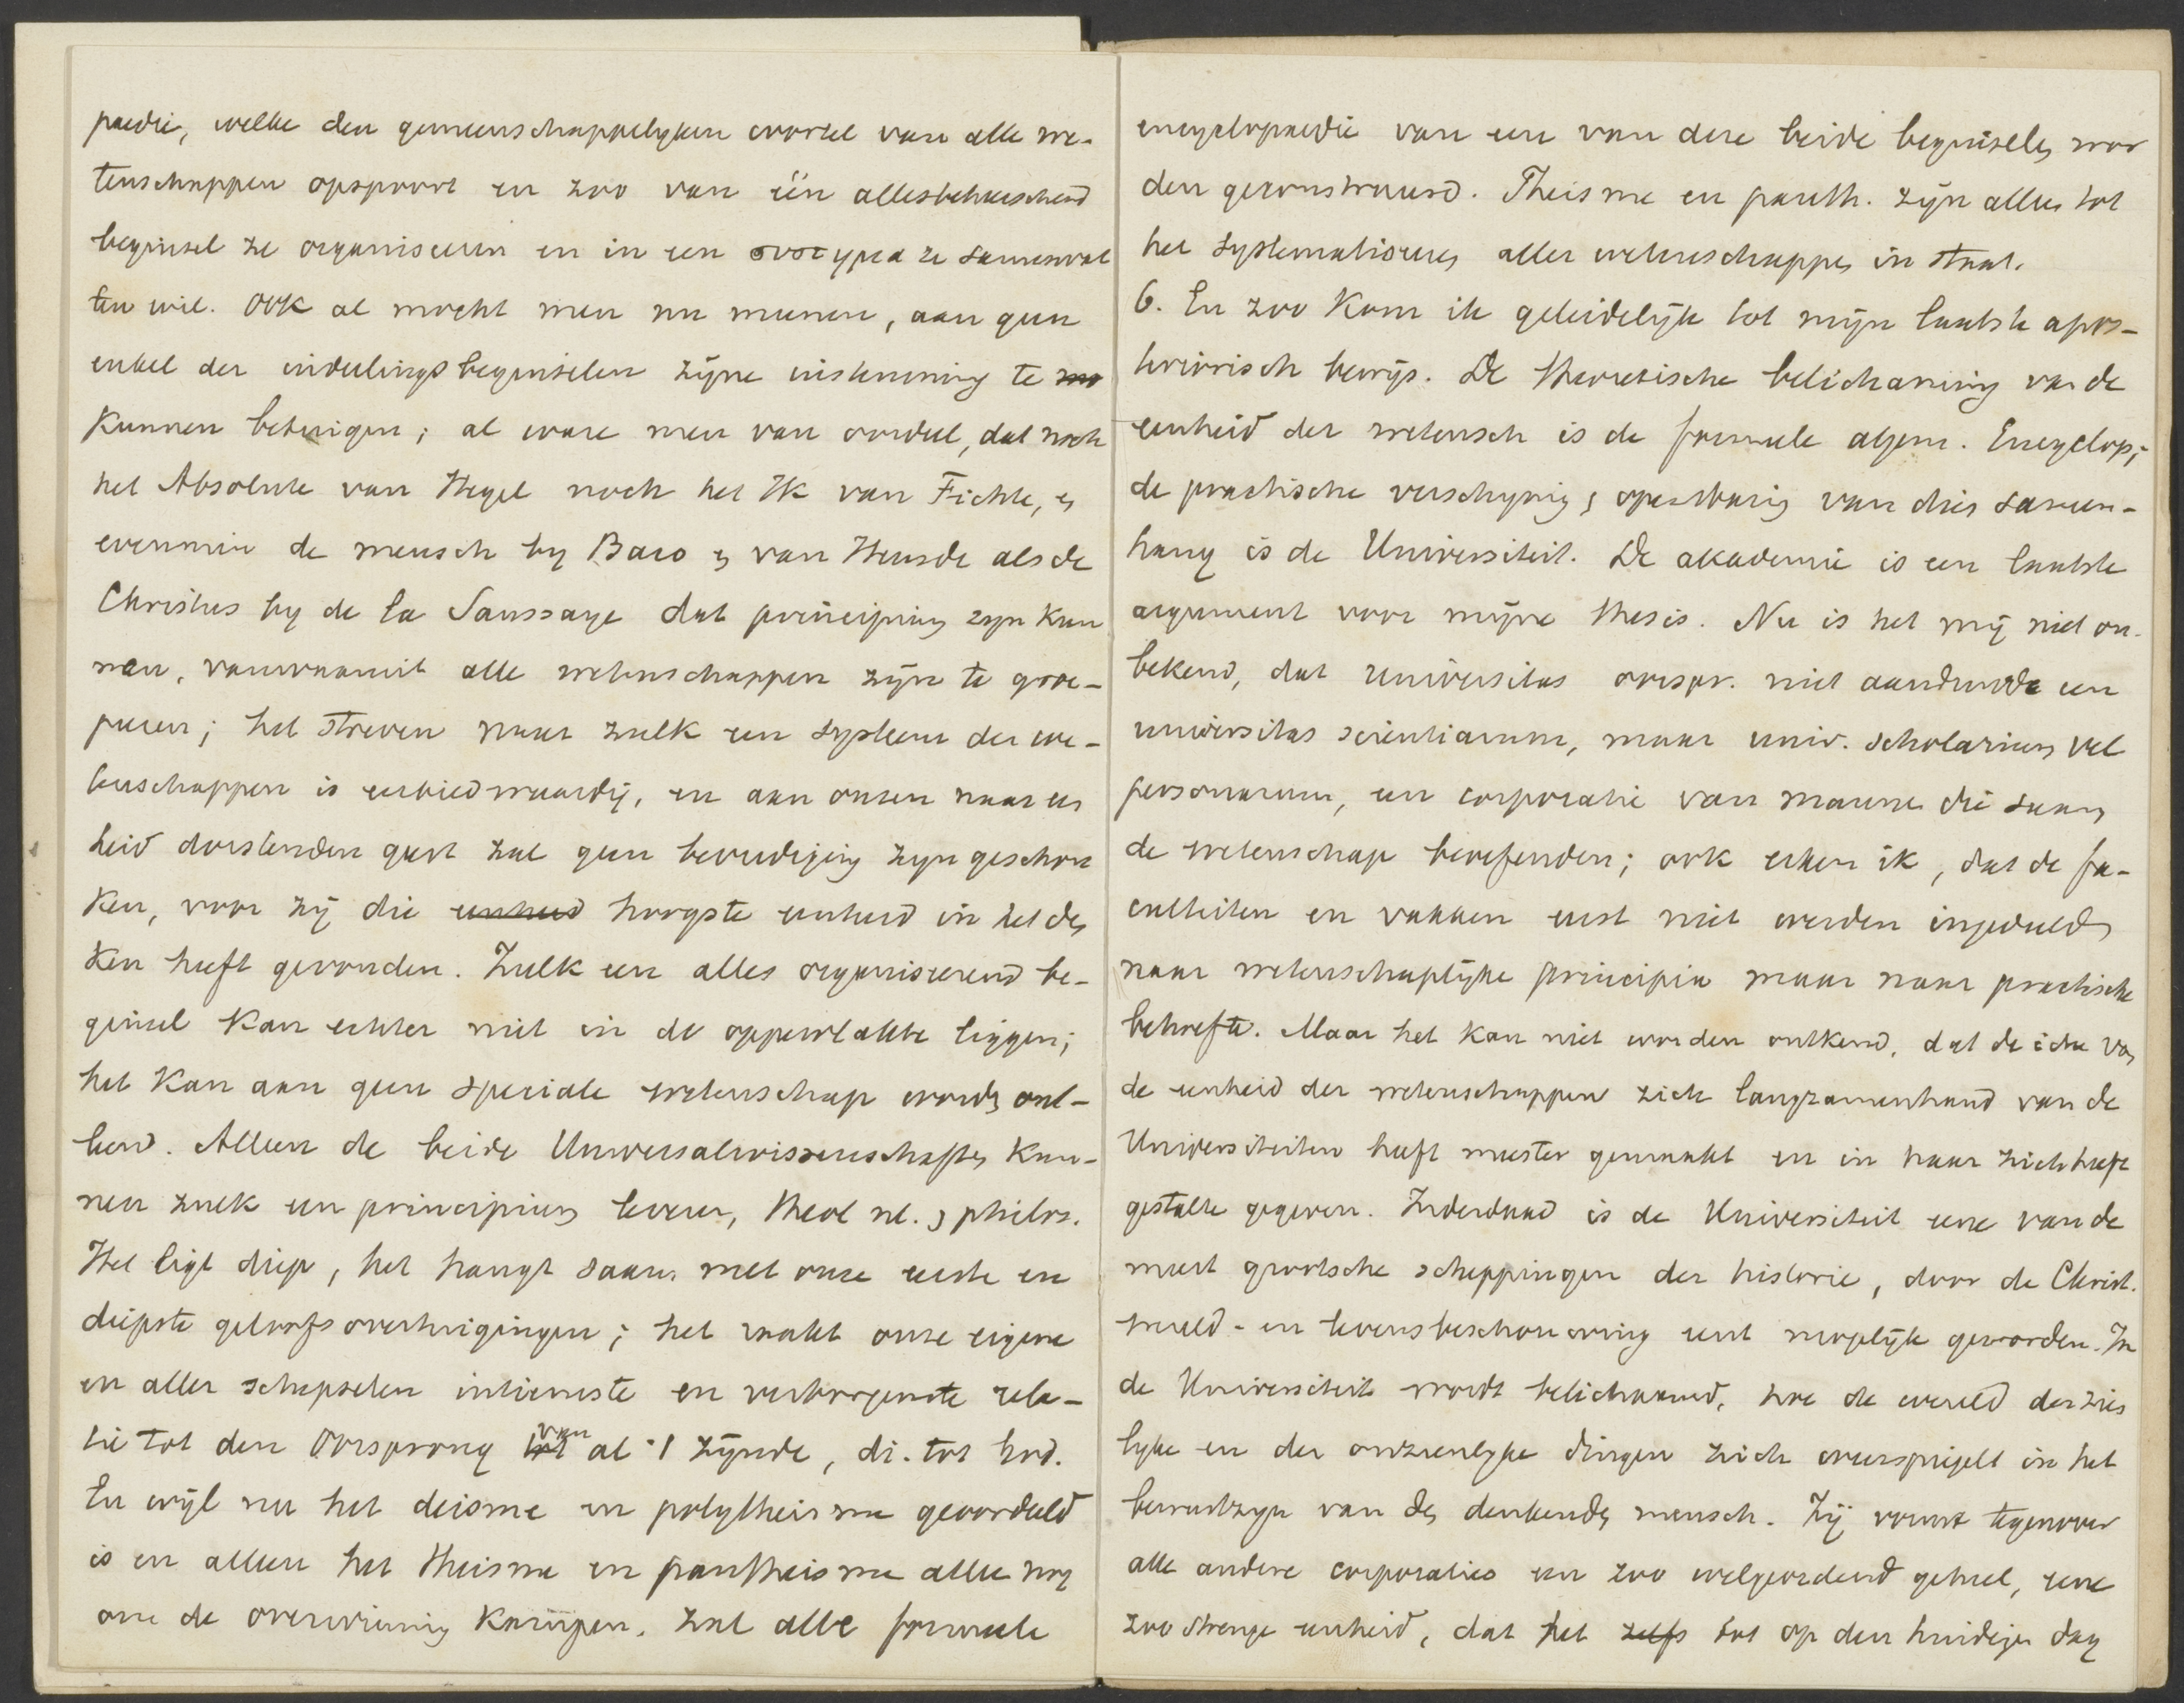 paedie, welke den gemeenschappelyken wortel van alle we-
tenschappen opspoort en zoo van één allesbeheerschend
beginsel ze organiseeren en in een systema ze samenvat
ten wil. Ook al mocht men nu meenen, aan geen
enkel der indeelingsbeginselen zijne instemming te
kunnen betuigen; al ware men van oordeel, dat noch
het Absolute van Hegel noch het Ik van Fichte, en
evenmin de mensch by Baco en van Heusde als de
Christus by de la Saussaye dat principium zyn kun
nen, vanwaaruit alle wetenschappen zijn te groe-
peeren; het streven naar zulk een systeem der we-
tenschappen is eerbiedwaardig, en aan onzen naar een
heid dorstenden geest zal geen bevrediging zyn geschon
ken, voor zij die eenheid hoogste eenheid in het den
ken heeft gevonden. Zulk een alles organiseerend be-
ginsel kan echter niet in de oppervlakte liggen;
het kan aan geen speciale wetenschap worden ont-
leend. Alleen de beide Universalwissenschaften kun-
nen zulk een principium leveren, theol nl. en philos.
Het ligt diep, het hangt saam met onze eerste en
diepste geloofsovertuigingen; het raakt onze eigene
en aller schepselen intiemste en verborgenste rela-
tie tot den Oorsprong van al 't zijnde, di. tot God.
En wijl nu het deisme en polytheisme geoordeeld
is en alleen het theisme en pantheisme alleen nog
om de overwinning kampen, zal alle formeele
encyclopaedie van een van deze beide beginselen wor
den geconstrueerd. Theisme en panth. zijn alleen tot
het systematiseeren aller wetenschappen in staat.
6. En zoo kom ik geleidelijk tot mijn laatste apos-
terioriisch bewijs. De theoretische belichaming van de
eenheid der wetensch is de formeele algem. Encyclop;
de practische verschyning en openbaring van dien samen-
hang is de Universiteit. De akademie is een laatste
argument voor mijne thesis. Nu is het mij niet on-
bekend, dat universitas oorspr. niet aanduidde een
universitas scientiarum, maar univ. scholarium vel
personarum, een corporatie van mannen die saam
de wetenschap beoefenden; ook erken ik, dat de fa-
culteiten en vakken eerst niet werden ingedeeld
naar wetenschaplijke principia maar naar practische
behoefte. Maar het kan niet worden ontkend, dat de idee van
de eenheid der wetenschappen zich langzamerhand van de
Universiteiten heeft meester gemaakt en in haar zich heeft
gestalte gegeven. Inderdaad is de Universiteit eene van de
meest grootsche scheppingen der historie, door de Christ.
wereld- en levensbeschouwing eerst mogelijk geworden. In
de Universiteit wordt belichaamd, hoe de wereld der zien
lyke en der onzienlyke dingen zich weerspiegelt in het
bewustzyn van den denkenden mensch. Zij vormt tegenover
alle andere corporaties een zoo welgeordend geheel, eene
zoo strenge eenheid, dat het zelfs tot op den huidigen dag